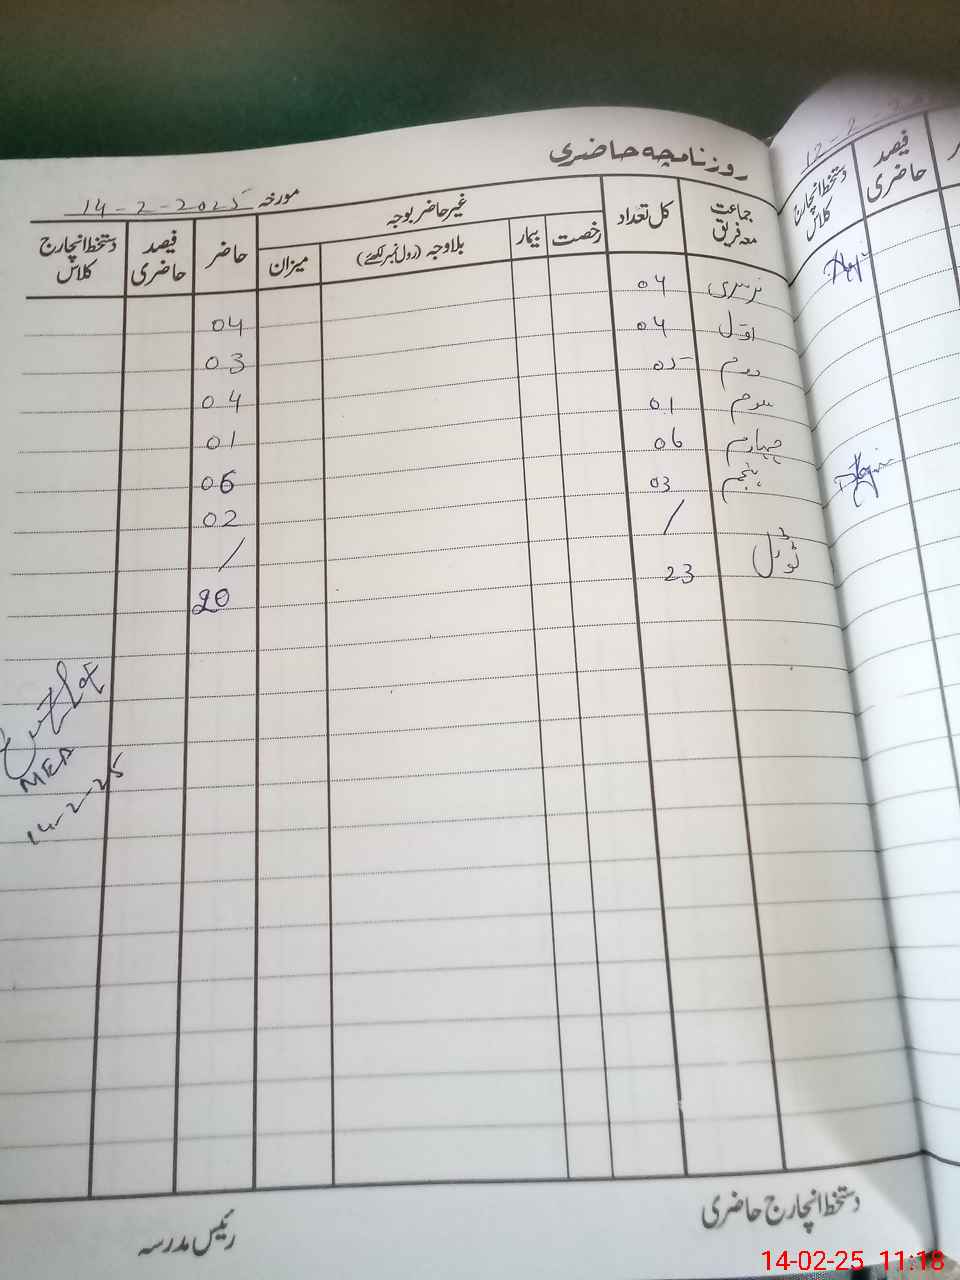 روزنامچہ حاضری
مورخہ 14-2-2025
جماعت معہ فریق کل تعداد غیر حاضر بوجہ حاضر فیصد حاضری دستخط انچارج کلاس
رخصت بیمار بلاوجہ (رول نمبر لکھئے) میزان
نرسری 04 04
اول 04 03
دوم 05 04
سوم 01 01
چہارم 06 06
پنجم 03 02
/ /
ٹوٹل 23 20
MEA
14-2-25
دستخط انچارج حاضری
رئیس مدرسہ
12-2-
فیصد حاضری
دستخط انچارج کلاس
14-02-25 11:18